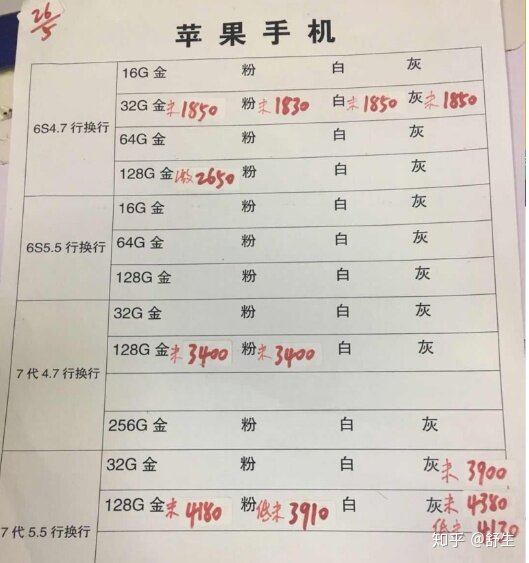 26/5
苹果手机
6S4.7 行换行
16G 金 粉 白 灰
32G 金 未1850 粉 未1830 白 未1850 灰 未1850
64G 金 粉 白 灰
128G 金 激2650 粉 白 灰
6S5.5 行换行
16G 金 粉 白 灰
64G 金 粉 白 灰
128G 金 粉 白 灰
7 代 4.7 行换行
32G 金 粉 白 灰
128G 金 未3400 粉 未3400 白 灰
256G 金 粉 白 灰
7 代 5.5 行换行
32G 金 粉 白 灰 未3900
128G 金 未4180 粉 低未3910 白 灰 未4380
低未4130
知乎 @舒生